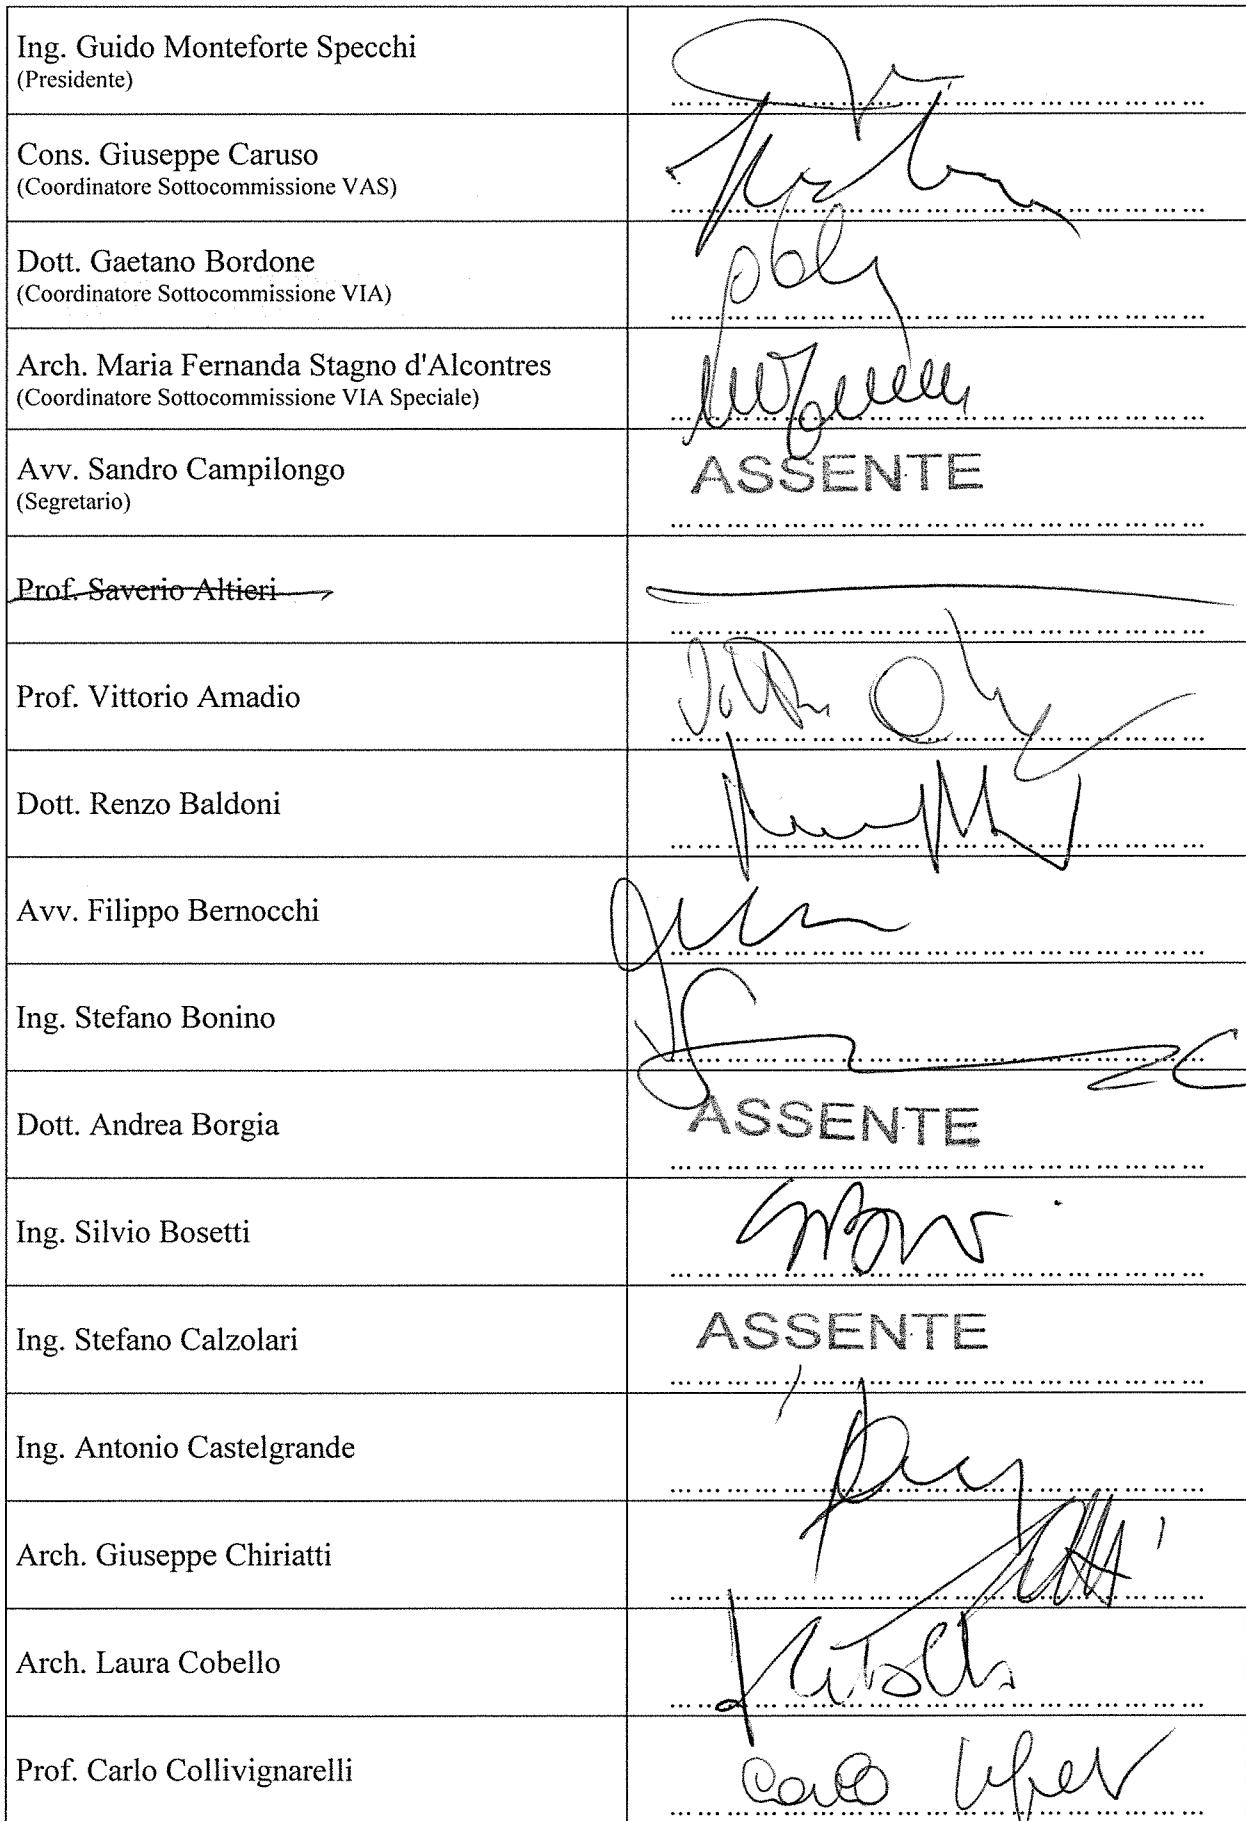 Ing. Guido Monteforte Specchi
(Presidente)
Cons. Giuseppe Caruso
(Coordinatore Sottocommissione VAS)
Dott. Gaetano Bordone
(Coordinatore Sottocommissione VIA)
Arch. Maria Fernanda Stagno d'Alcontres
(Coordinatore Sottocommissione VIA Speciale)
Avv. Sandro Campilongo
(Segretario)
ASSENTE
Prof. Saverio Altieri
Prof. Vittorio Amadio
Dott. Renzo Baldoni
Avv. Filippo Bernocchi
Ing. Stefano Bonino
Dott. Andrea Borgia
ASSENTE
Ing. Silvio Bosetti
Ing. Stefano Calzolari
ASSENTE
Ing. Antonio Castelgrande
Arch. Giuseppe Chiriatti
Arch. Laura Cobello
Prof. Carlo Collivignarelli